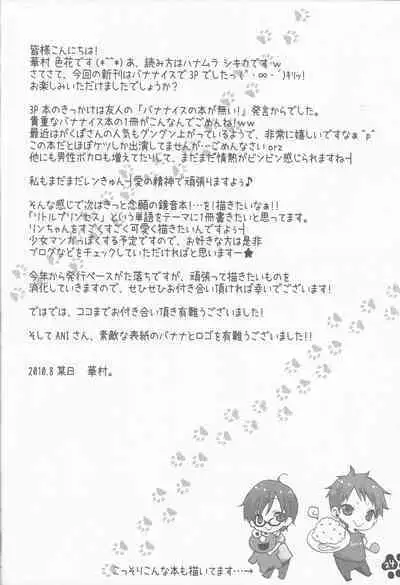 皆様こんにちは!
華村 色花です(*^^*)あ、読み方はハナムラ シキカですw
さてさて、今回の新刊はバナナイスで3Pでしたっ(`・∞・´)キリッ!
お楽しみいただけましたでしょうか?
3P本のきっかけは友人の「バナナイスの本が無い!」発言からでした。
貴重なバナナイス本の1冊がこんなんでごめんね!ww
最近はがくぽさんの人気もグングン上がっているようで、非常に嬉しいですなぁ^p^
この本だとほぼケツしか出演してません…ごめんなさいorz
他にも男性ボカロも増えてたりして、まだまだ情熱がビンビン感じられますね┥
私もまだまだレンきゅん┥愛の精神で頑張りますよぅ♪
そんな感じで次はきっと念願の鏡音本!…を!描きたいなぁ!!
「リトルプリンセス」という単語をテーマに1冊書きたいと思ってます。
リンちゃんをすごくすごく可愛く描きたいんですよう┥
少女マンガっぽくする予定ですので、お好きな方は是非
ブログなどをチェックしていただければと思いますー★
今年から発行ペースがた落ちですが、頑張って描きたいものを
消化していきますので、ぜひぜひお付き合い頂ければ幸いでございます!
ではでは、ココまでお付き合い頂き有難うございました!
そしてANIさん、素敵な表紙のバナナとロゴを有難うございました!!
2010.8 某日 華村。
こっそりこんな本も描いてます…→
24